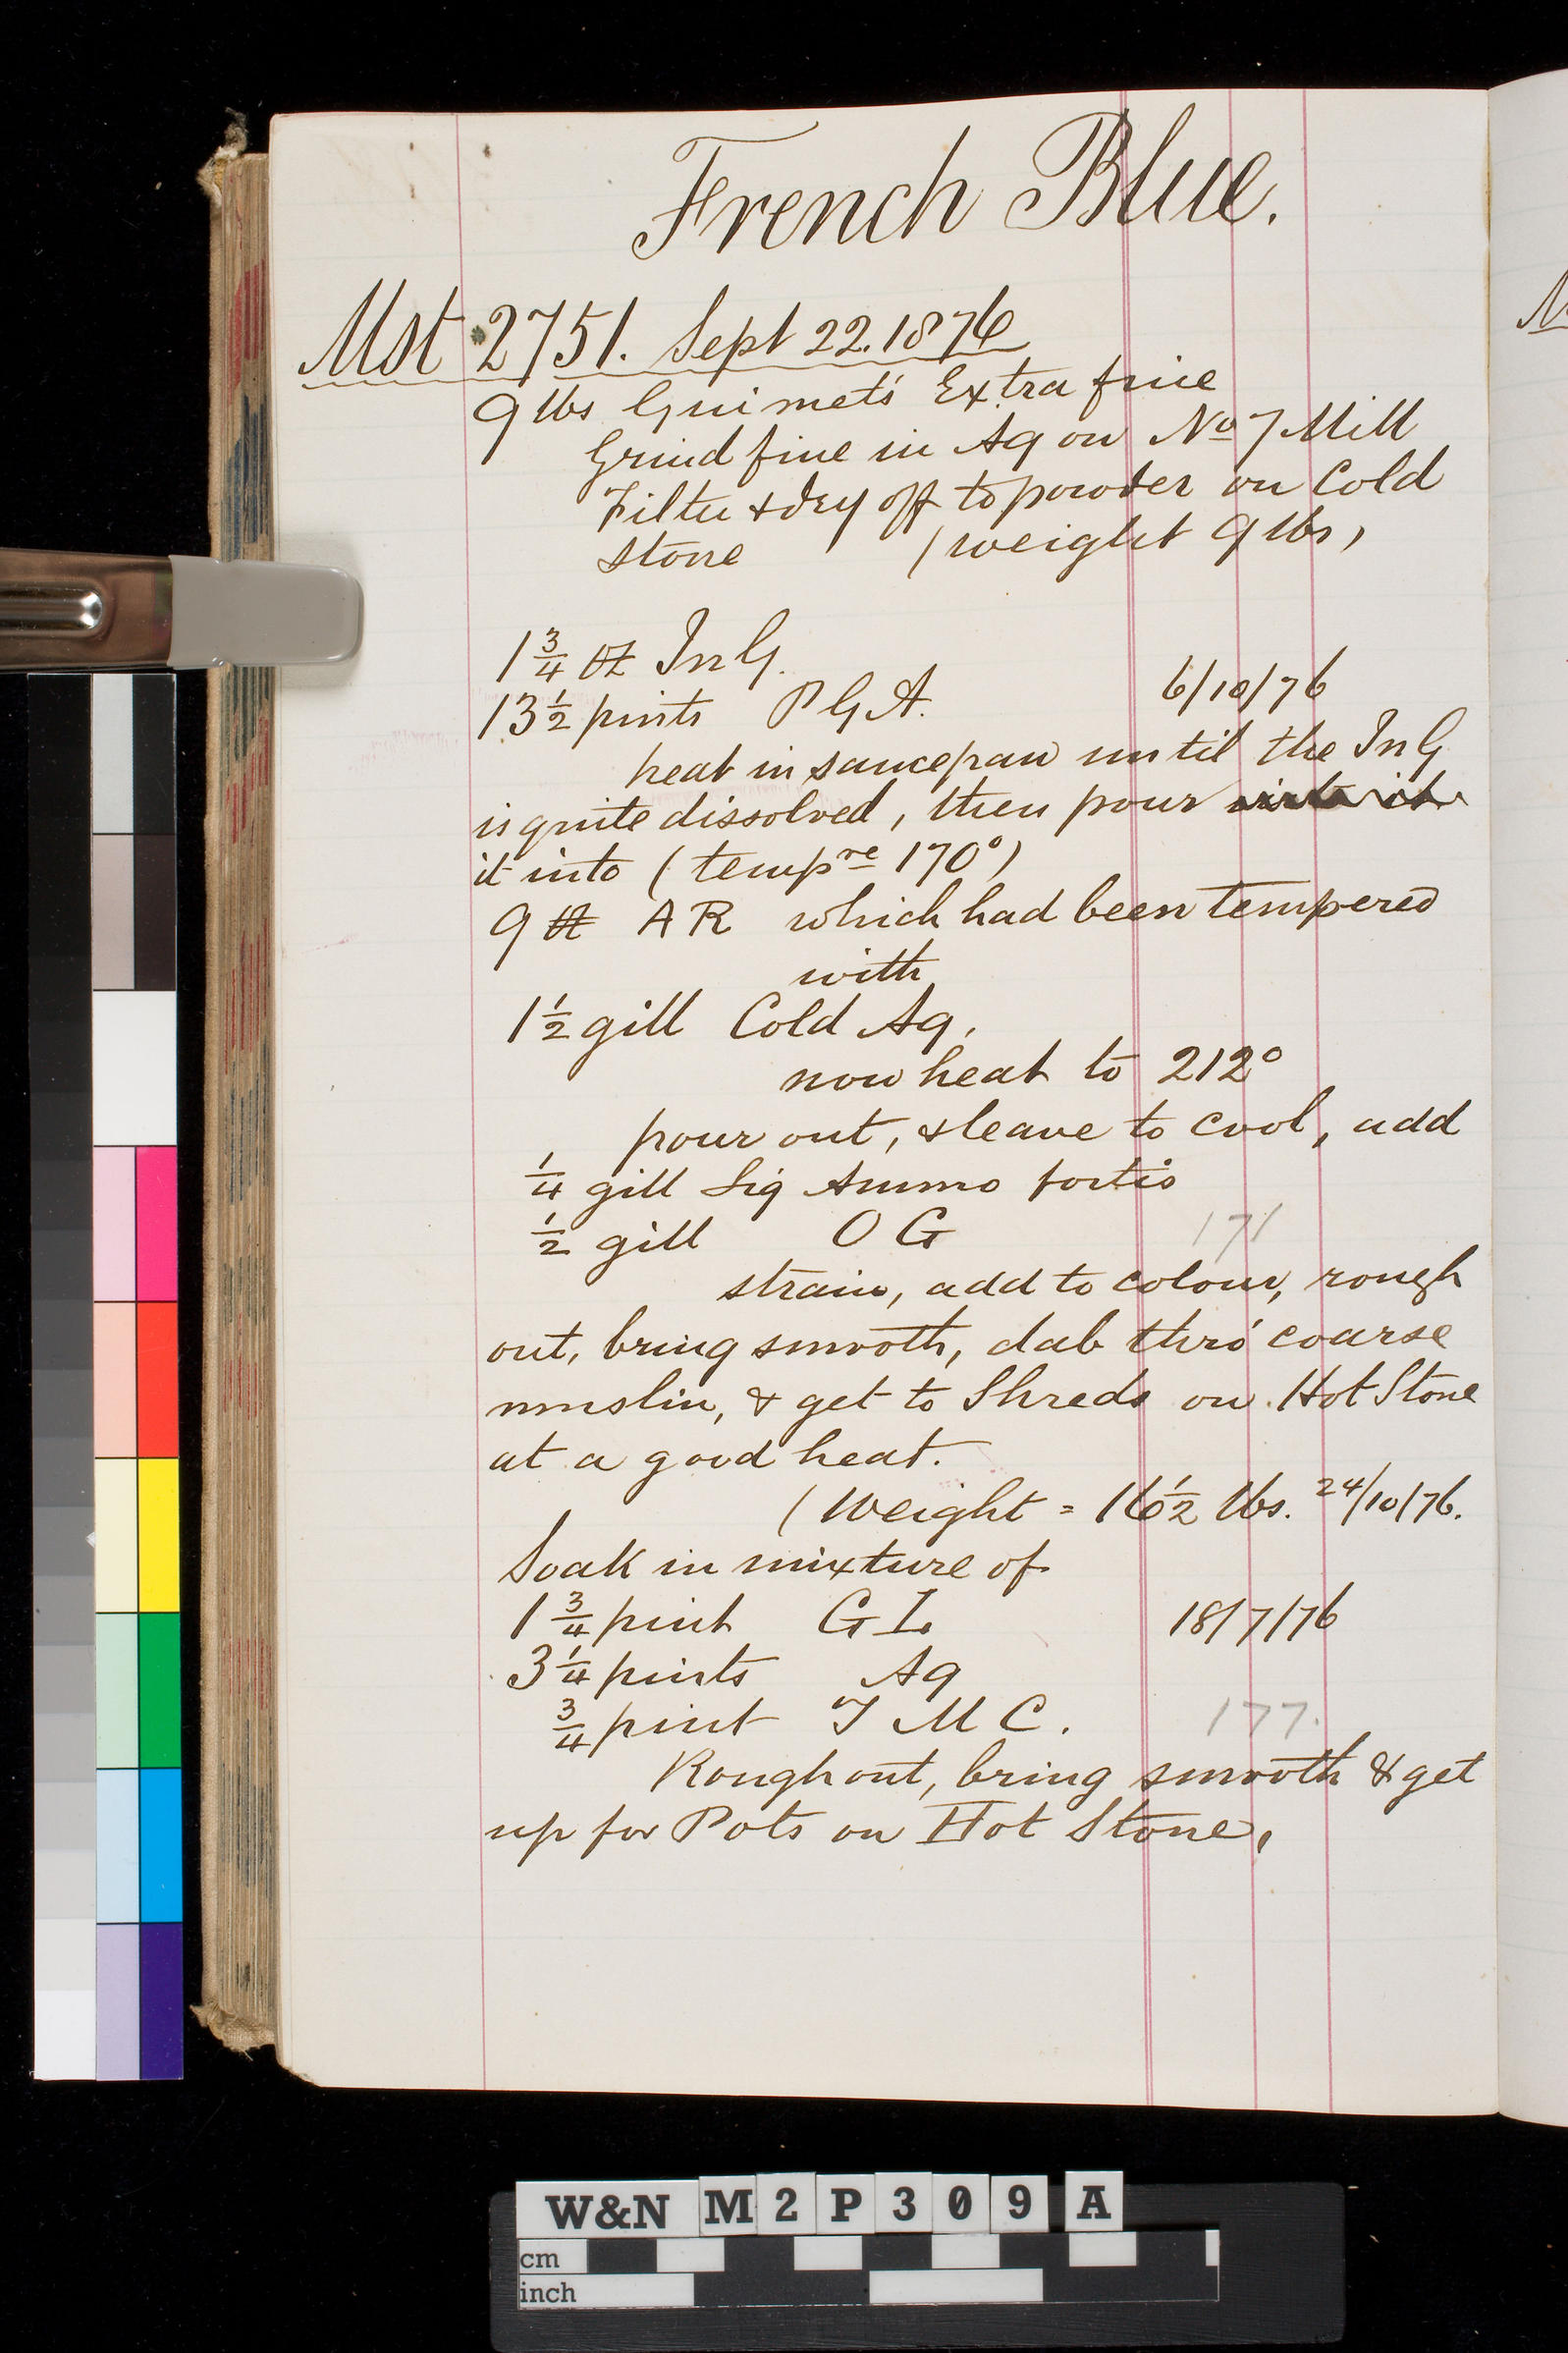 French Blue.
Mst 2751. Sept 22. 1876
9 lbs Guimet's Extra fine
Grind fine in Aq on No 7 Mill
Filter & dry off to powder on Cold
Stone (weight 9 lbs)
1 3/4 oz In G.
13 1/2 pints P G A. 6/10/76
heat in saucepan until the In G
is quite dissolved, then pour into it
it into (tempre 170°)
9 ℔ A R which had been tempered
with
1 1/2 gill Cold Aq,
now heat to 212°
pour out, & leave to cool, add
1/4 gill Liq Ammo fortis
1/2 gill O G 171
strain, add to colour, rough
out, bring smooth, dab thro' coarse
muslin, & get to Shreds on Hot Stone
at a good heat.
(Weight = 16 1/2 lbs. 24/10/76.
Soak in mixture of
1 3/4 pint G L 18/7/76
3 1/4 pints Aq
3/4 pint T M C. 177.
Rough out, bring smooth & get
up for Pots on Hot Stone,
W&N M2P309A
cm
inch